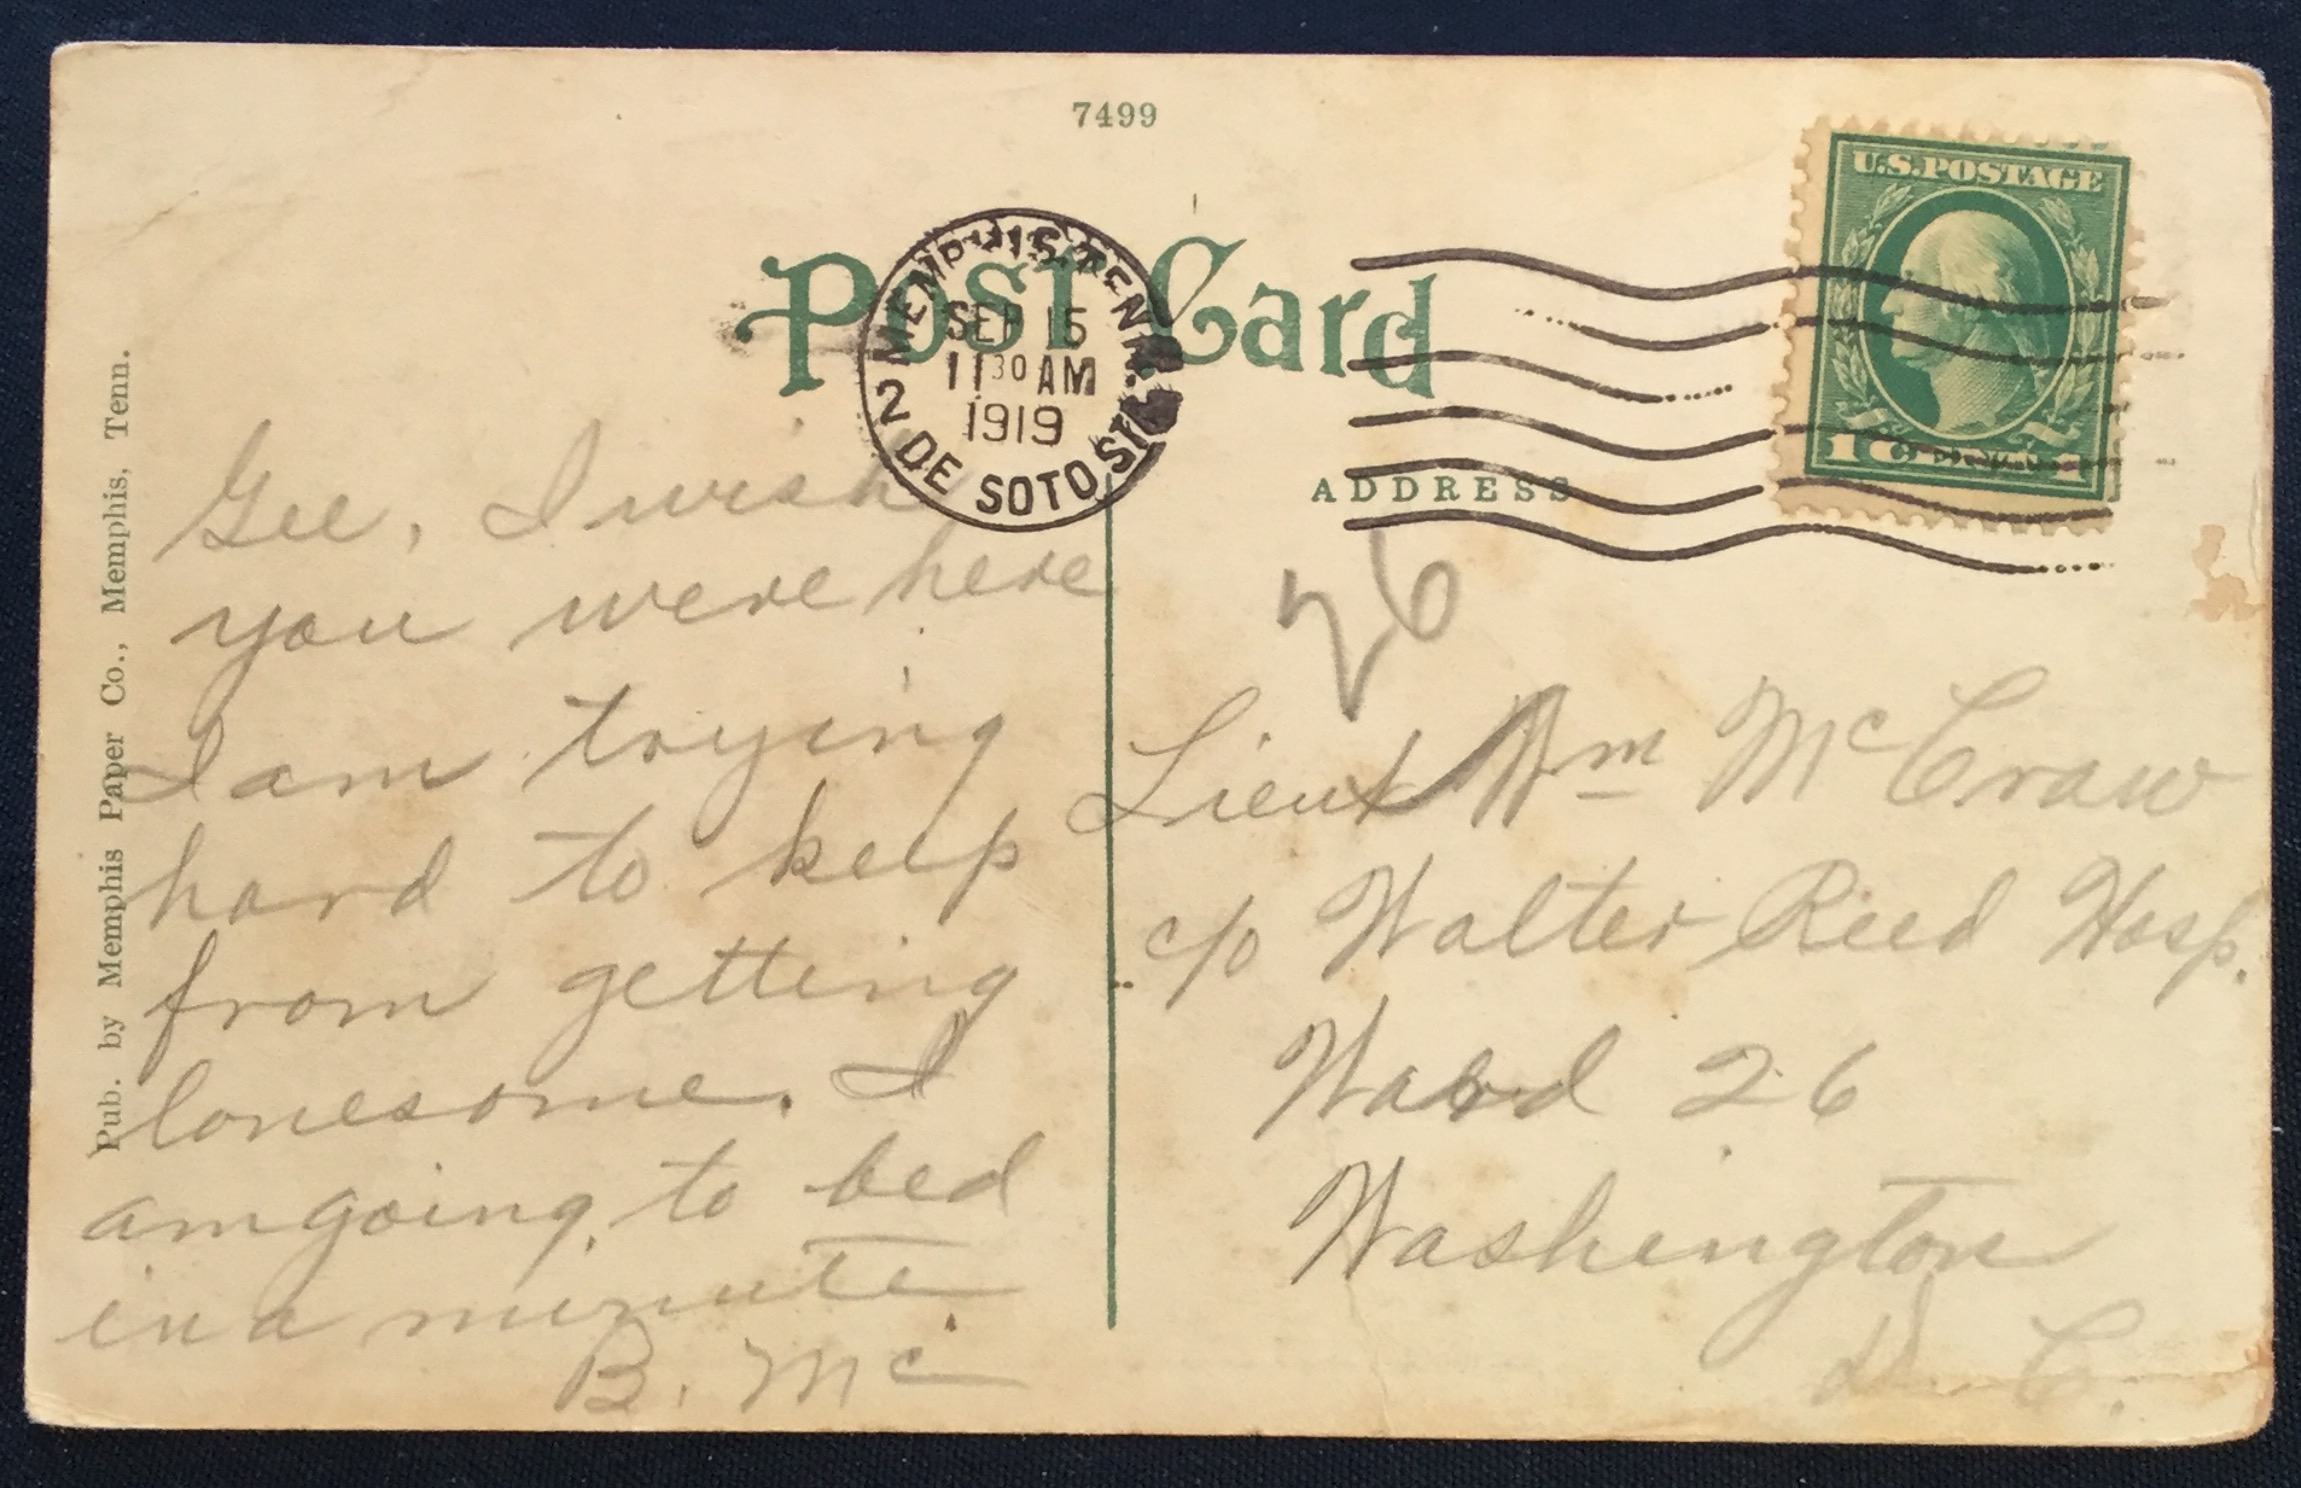 7499
Post Card
MEMPHIS, TENN.
SEP 15
11 30 AM
1919
2 DE SOTO STA.
U.S. POSTAGE
1 1
ADDRESS
Pub. by Memphis Paper Co., Memphis, Tenn.
Gee, I wish
you were here
I am trying
hard to keep
from getting
lonesome. I
am going to bed
in a minute.
B. Mc
26
Lieut Wm McCraw
c/o Walter Reed Hosp.
Ward 26
Washington
D. C.